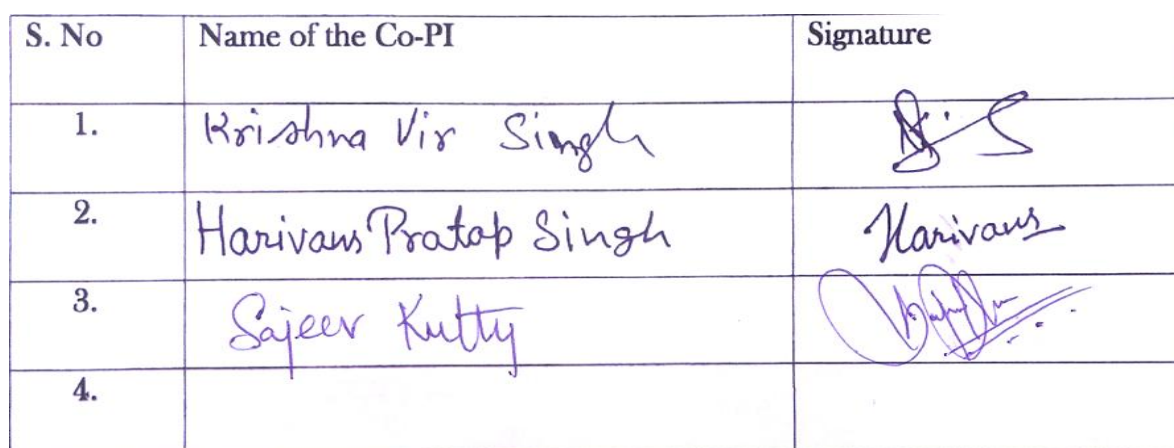 S. No Name of the Co-PI Signature
1. Krishna Vir Singh
2. Harivans Pratap Singh Harivans
3. Sajeev Kutty
4.